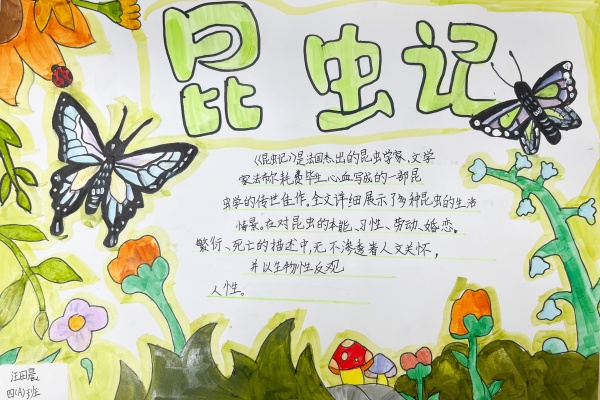 昆虫记
《昆虫记》是法国杰出的昆虫学家、文学
家法布尔耗费毕生心血写成的一部昆
虫学的传世佳作,全文详细展示了多种昆虫的生活
情景。在对昆虫的本能、习性、劳动、婚恋。
繁衍、死亡的描述中,无不渗透着人文关怀,
并以生物性反观
人性。
汪田晨
四(A)班